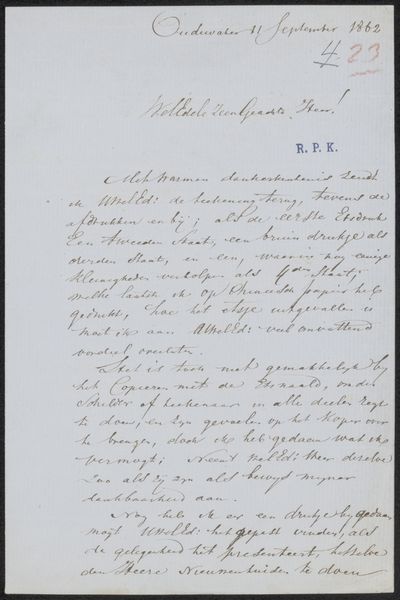 Oudewater 11 September 1862
4 23
WelEdele Zeer Geachte Heer!
R. P. K.
Met warmen dankerkentenis zende
ik UWelEd: de teekening terug, tevens de
afdrukken er bij; als de eerste Etsdruk
Een tweeden Staat, een bruin drukje als
derden Staat, en een, waarin nog eenige
kleinigheden verholpen als 4den Staat;
welke laatste ik op Chineesch papier heb
gedrukt, hoe het etsje uitgevallen is
moet ik aan UWelEd: veel omvattend
oordeel overlaten.
Het is toch niet gemakkelijk bij
het Copieeren met de Etsnaald, om den
Schilder of teekenaar in alle deelen regt
te doen, en zijn gevoelen op het Koper over
te brengen, doch ik heb gedaan wat ik
vermogt; Neemt WelEd: Heer dezelve
zoo als zij zijn als bewijs mijner
dankbaarheid aan.
Nog heb ik er een drukje bij gedaan
mogt UWelEd: het gepast vinden, als
de gelegenheid het presenteert, hetzelve
den Heere Nieuwenhuiden te doen